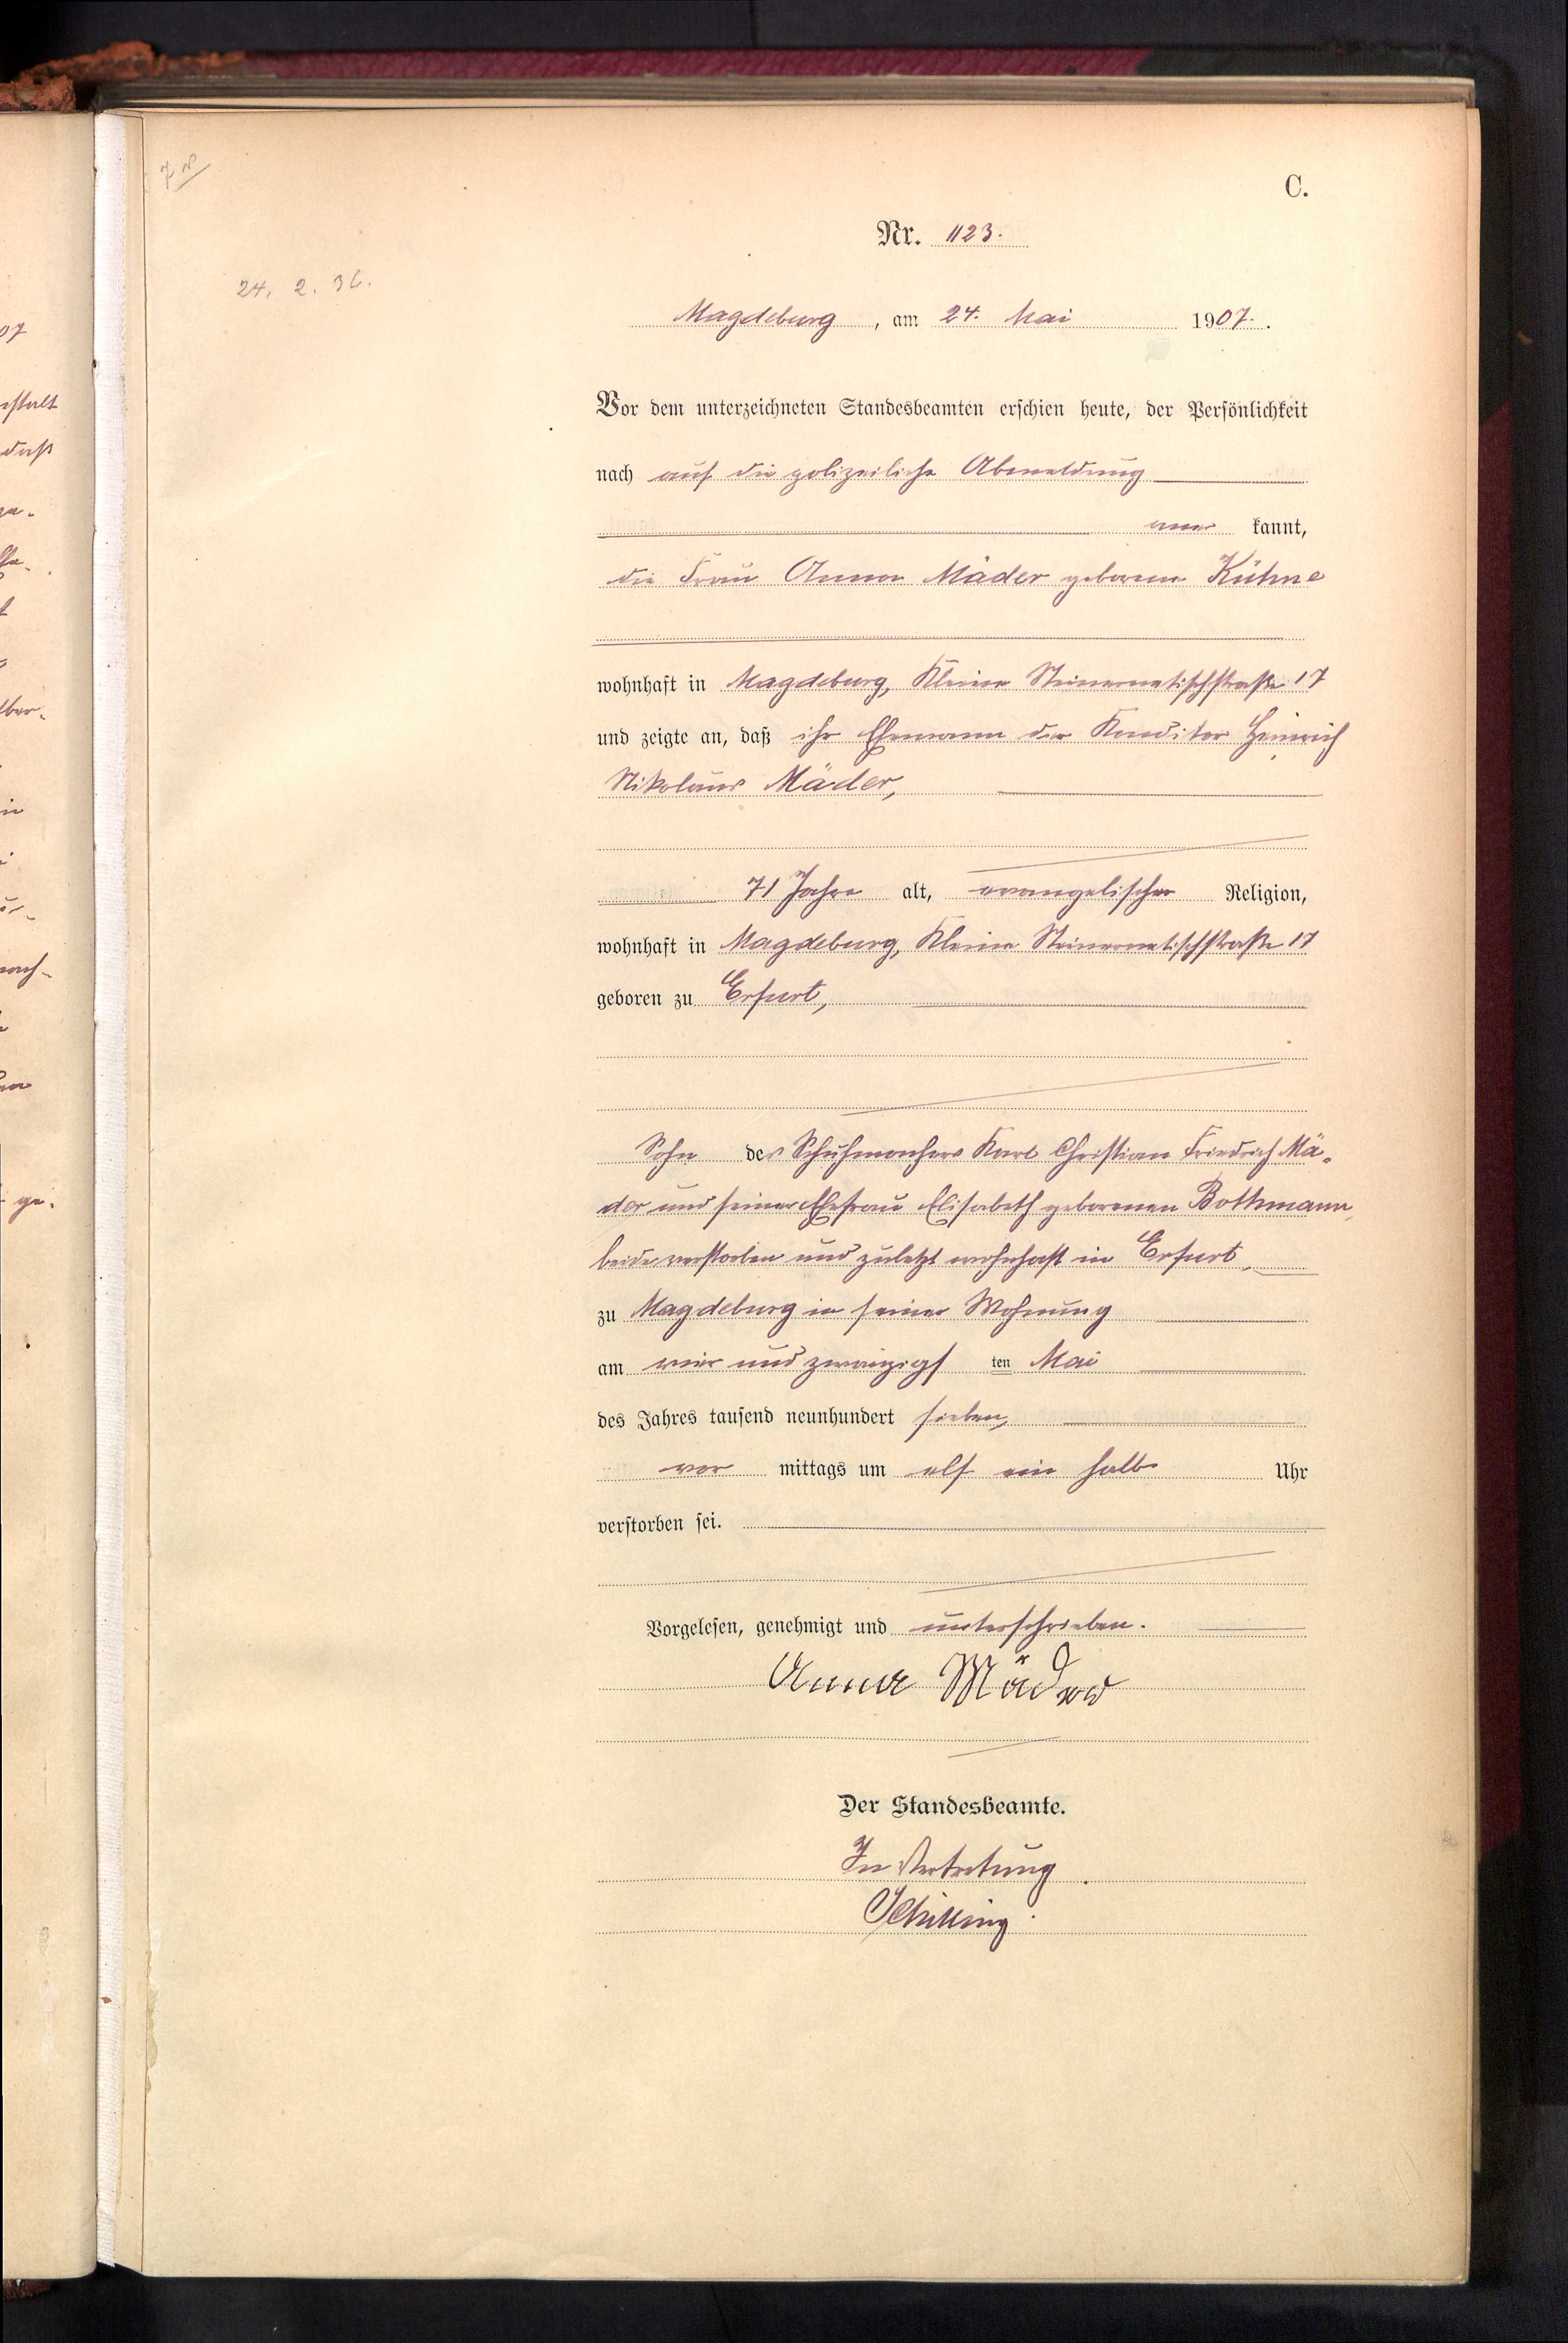 C.
Nr. 1123.
24. 2. 36.
Magdeburg, am 24. Mai 1907.
Vor dem unterzeichneten Standesbeamten erschien heute, der Persönlichkeit
nach auf die polizeiliche Abmeldung
aner kannt,
die Frau Anna Mäder geborene Kühne
wohnhaft in Magdeburg, Kleine Steinernetischstraße 17
und zeigte an, daß ihr Ehemann der Konditor Heinrich
Nikolaus Mäder,
71 Jahre alt, evangelischer Religion,
wohnhaft in Magdeburg, Kleine Steinernetischstraße 17
geboren zu Erfurt,
Sohn des Schuhmachers Karl Christian Friedrich Mä-
der und seiner Ehefrau Elisabeth geborenen Bothmann,
beide verstorben und zuletzt wohnhaft in Erfurt,
zu Magdeburg in seiner Wohnung
am vier und zwanzigs ten Mai
des Jahres tausend neunhundert sieben,
vor mittags um elf ein halb Uhr
verstorben sei.
Vorgelesen, genehmigt und unterschrieben.
Anna Mäder
Der Standesbeamte.
In Vertretung
Schilling.